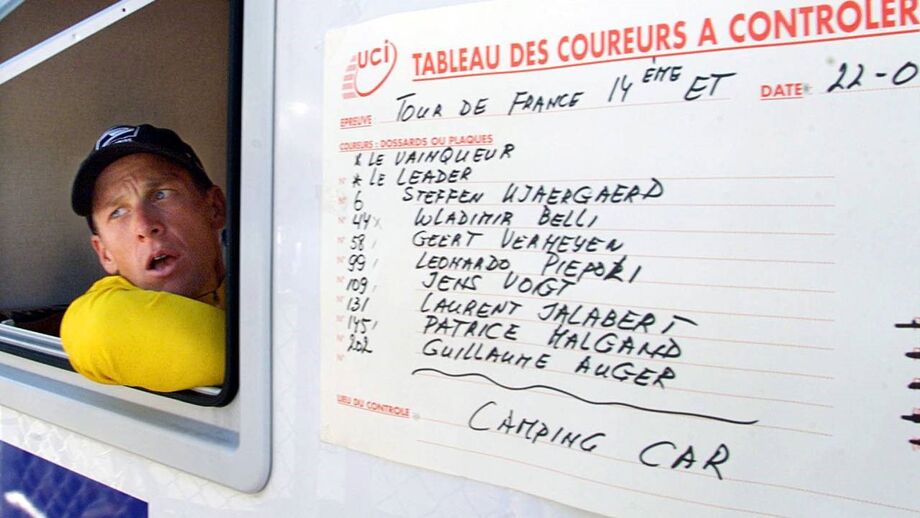 UCI
TABLEAU DES COUREURS A CONTROLER
EPREUVE TOUR DE FRANCE 14ÈME ET DATE 22-0
COUREURS: DOSSARDS OU PLAQUES
* LE VAINQUEUR
N° * LE LEADER
N° 6 STEFFEN KJAERGAERD
N° 44 WLADIMIR BELLI
N° 58 GEERT VERHEYEN
N° 99 LEONARDO PIEPOLI
N° 109 JENS VOIGT
N° 131 LAURENT JALABERT
N° 145 PATRICE HALGAND
N° 202 GUILLAUME AUGER
N°
LIEU DU CONTROLE CAMPING CAR